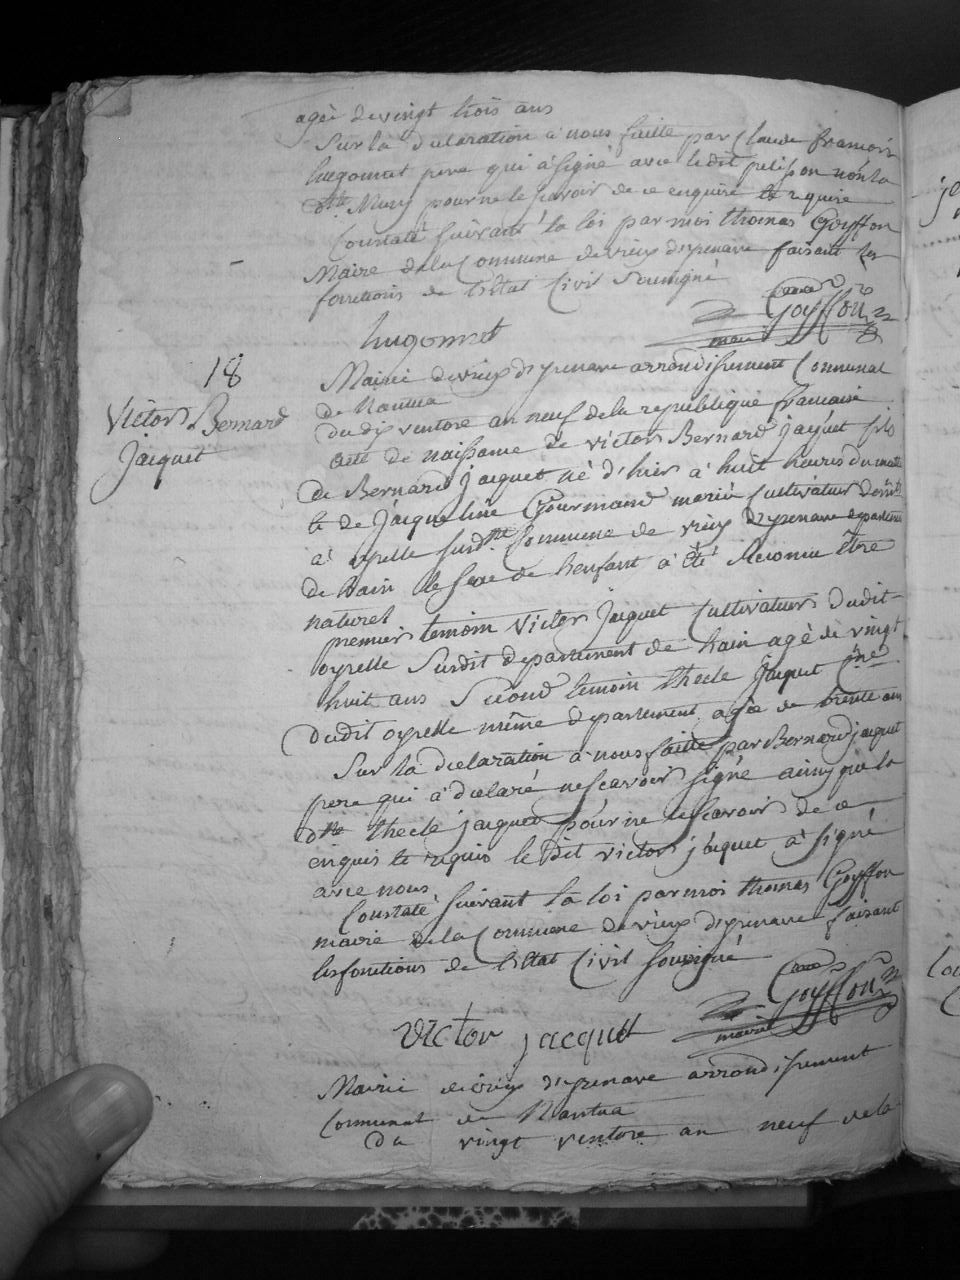 agée de vingt trois ans
Sur la declaration a nous faitte par Claude francois
hugonnet pere qui a signé avec ledit pelisson non la
dtte Mury pour ne le scavoir de ce enquire et require
Constaté suivant la loi par moi thomas Goyffon
Maire de la Commune de vieux d'yzenave faisant les
fonctions de l'etat Civil soussigné
Goyffon
maire
hugonnet
18
Victor Bernard
Jacquet
Mairie de vieux d'yzenave arrondissement Communal
de Nantua
du dix ventose an neuf de la republique francaise
acte de naissance de victor Bernard jacquet fils
de Bernard jacquet né d'hier a huit heures du matin
et de jacqueline Gourmand mariés Cultivateur
a oyselle susdtte Commune de vieux d'yzenave departement
de Lain le sexe de Lenfant a été Reconnu être
naturel
premier temoin Victor Jacquet Cultivateur dudit
oyselle susdit departement de Lain agé de vingt
huit ans second temoin thecle Jacquet
dudit oyselle même departement agée de trente ans
Sur la declaration a nous faitte par Bernard jacquet
pere qui a declaré ne scavoir signé ainsy que la
dtte thecle jacquet pour ne le scavoir de ce
enquis et requis le dit victor jacquet a signé
avec nous
Constaté suivant la loi par moi thomas Goyffon
maire de la Commune de vieux d'yzenave faisant
les fonctions de l'etat Civil soussigné
Goyffon
maire
victor jacquet
Mairie de vieux d'yzenave arrondissement
Communal de Nantua
du vingt ventose an neuf de la